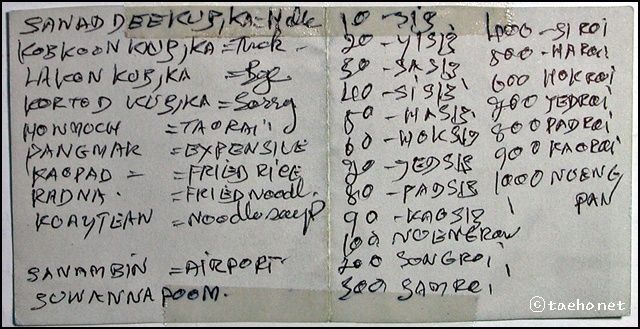 SANAD DEEKUB,KA=Hello
KOBKOON KUB,KA=Tuck
LAKON KUB,KA =Bye
KORTOD KUB,KA=Sorry
HONMOCH =TAORAI
PANGMAK =EXPENSIVE
KAOPAD =FRIED RICE
RADNA =FRIED NOODL.
KOAYTEAN =Noodle soup
SANAMBIN =AIRPORT
SUWANNAPOOM.
10 -SIB
20 -YISIB
30 -SASIB
40 -SISIB
50 -HASIB
60 -HOKSIB
70 -JEDSIB
80 -PADSIB
90 -KAOSIB
100 NOENGROY
200 SONGROI
300 SAMROI
400 -SIROI
500 -HAROI
600 HOKROI
700 JEDROI
800 PADROI
900 KAOROI
1000 NOENG
PAN
©taeho.net